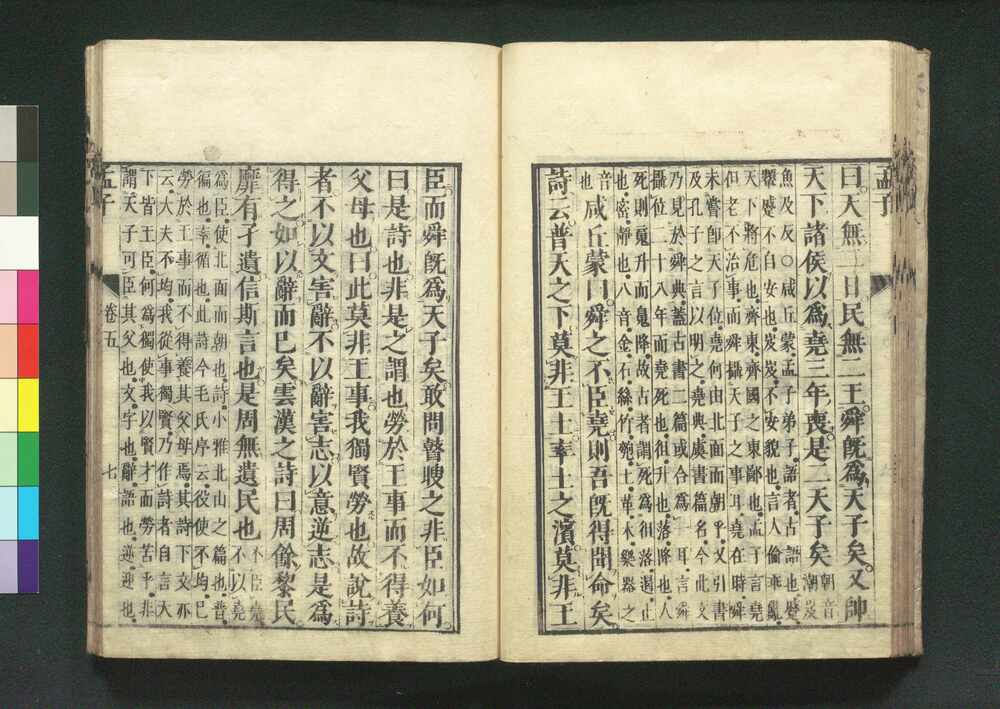 孟子
曰天無二日民無二王舜旣爲天子矣又帥
天下諸侯以爲堯三年喪是二天子矣朝音
潮岌
魚及反○咸丘蒙孟子弟子語者古語也蹙
顰蹙不自安也岌岌不安貌也言人倫乖亂
天下將危也齊東齊國之東鄙也孟子言堯
但老不治事而舜攝天子之事耳堯在時舜
未嘗卽天子位堯何由北面而朝乎又引書
及孔子之言以明之堯典虞書篇名今此文
乃見於舜典蓋古書二篇或合爲一耳言舜
攝位二十八年而堯死也徂升也落降也人
死則魂升而魄降故古者謂死爲徂落遏止
也密靜也八音金石絲竹匏土革木樂器之
音
也
咸丘蒙曰舜之不臣堯則吾旣得聞命矣
詩云普天之下莫非王土率土之濱莫非王
臣而舜旣爲天子矣敢問瞽瞍之非臣如何
曰是詩也非是之謂也勞於王事而不得養
父母也曰此莫非王事我獨賢勞也故說詩
者不以文害辭不以辭害志以意逆志是爲
得之如以辭而已矣雲漢之詩曰周餘黎民
靡有孑遺信斯言也是周無遺民也不臣堯
不以堯
爲臣使北面而朝也詩小雅北山之篇也普
徧也率循也此詩今毛氏序云役使不均已
勞於王事而不得養其父母焉其詩下文亦
云大夫不均我從事獨賢乃作詩者自言天
下皆王臣何爲獨使我以賢才而勞苦乎非
謂天子可臣其父也文字也辭語也逆迎也
孟子 卷五 七